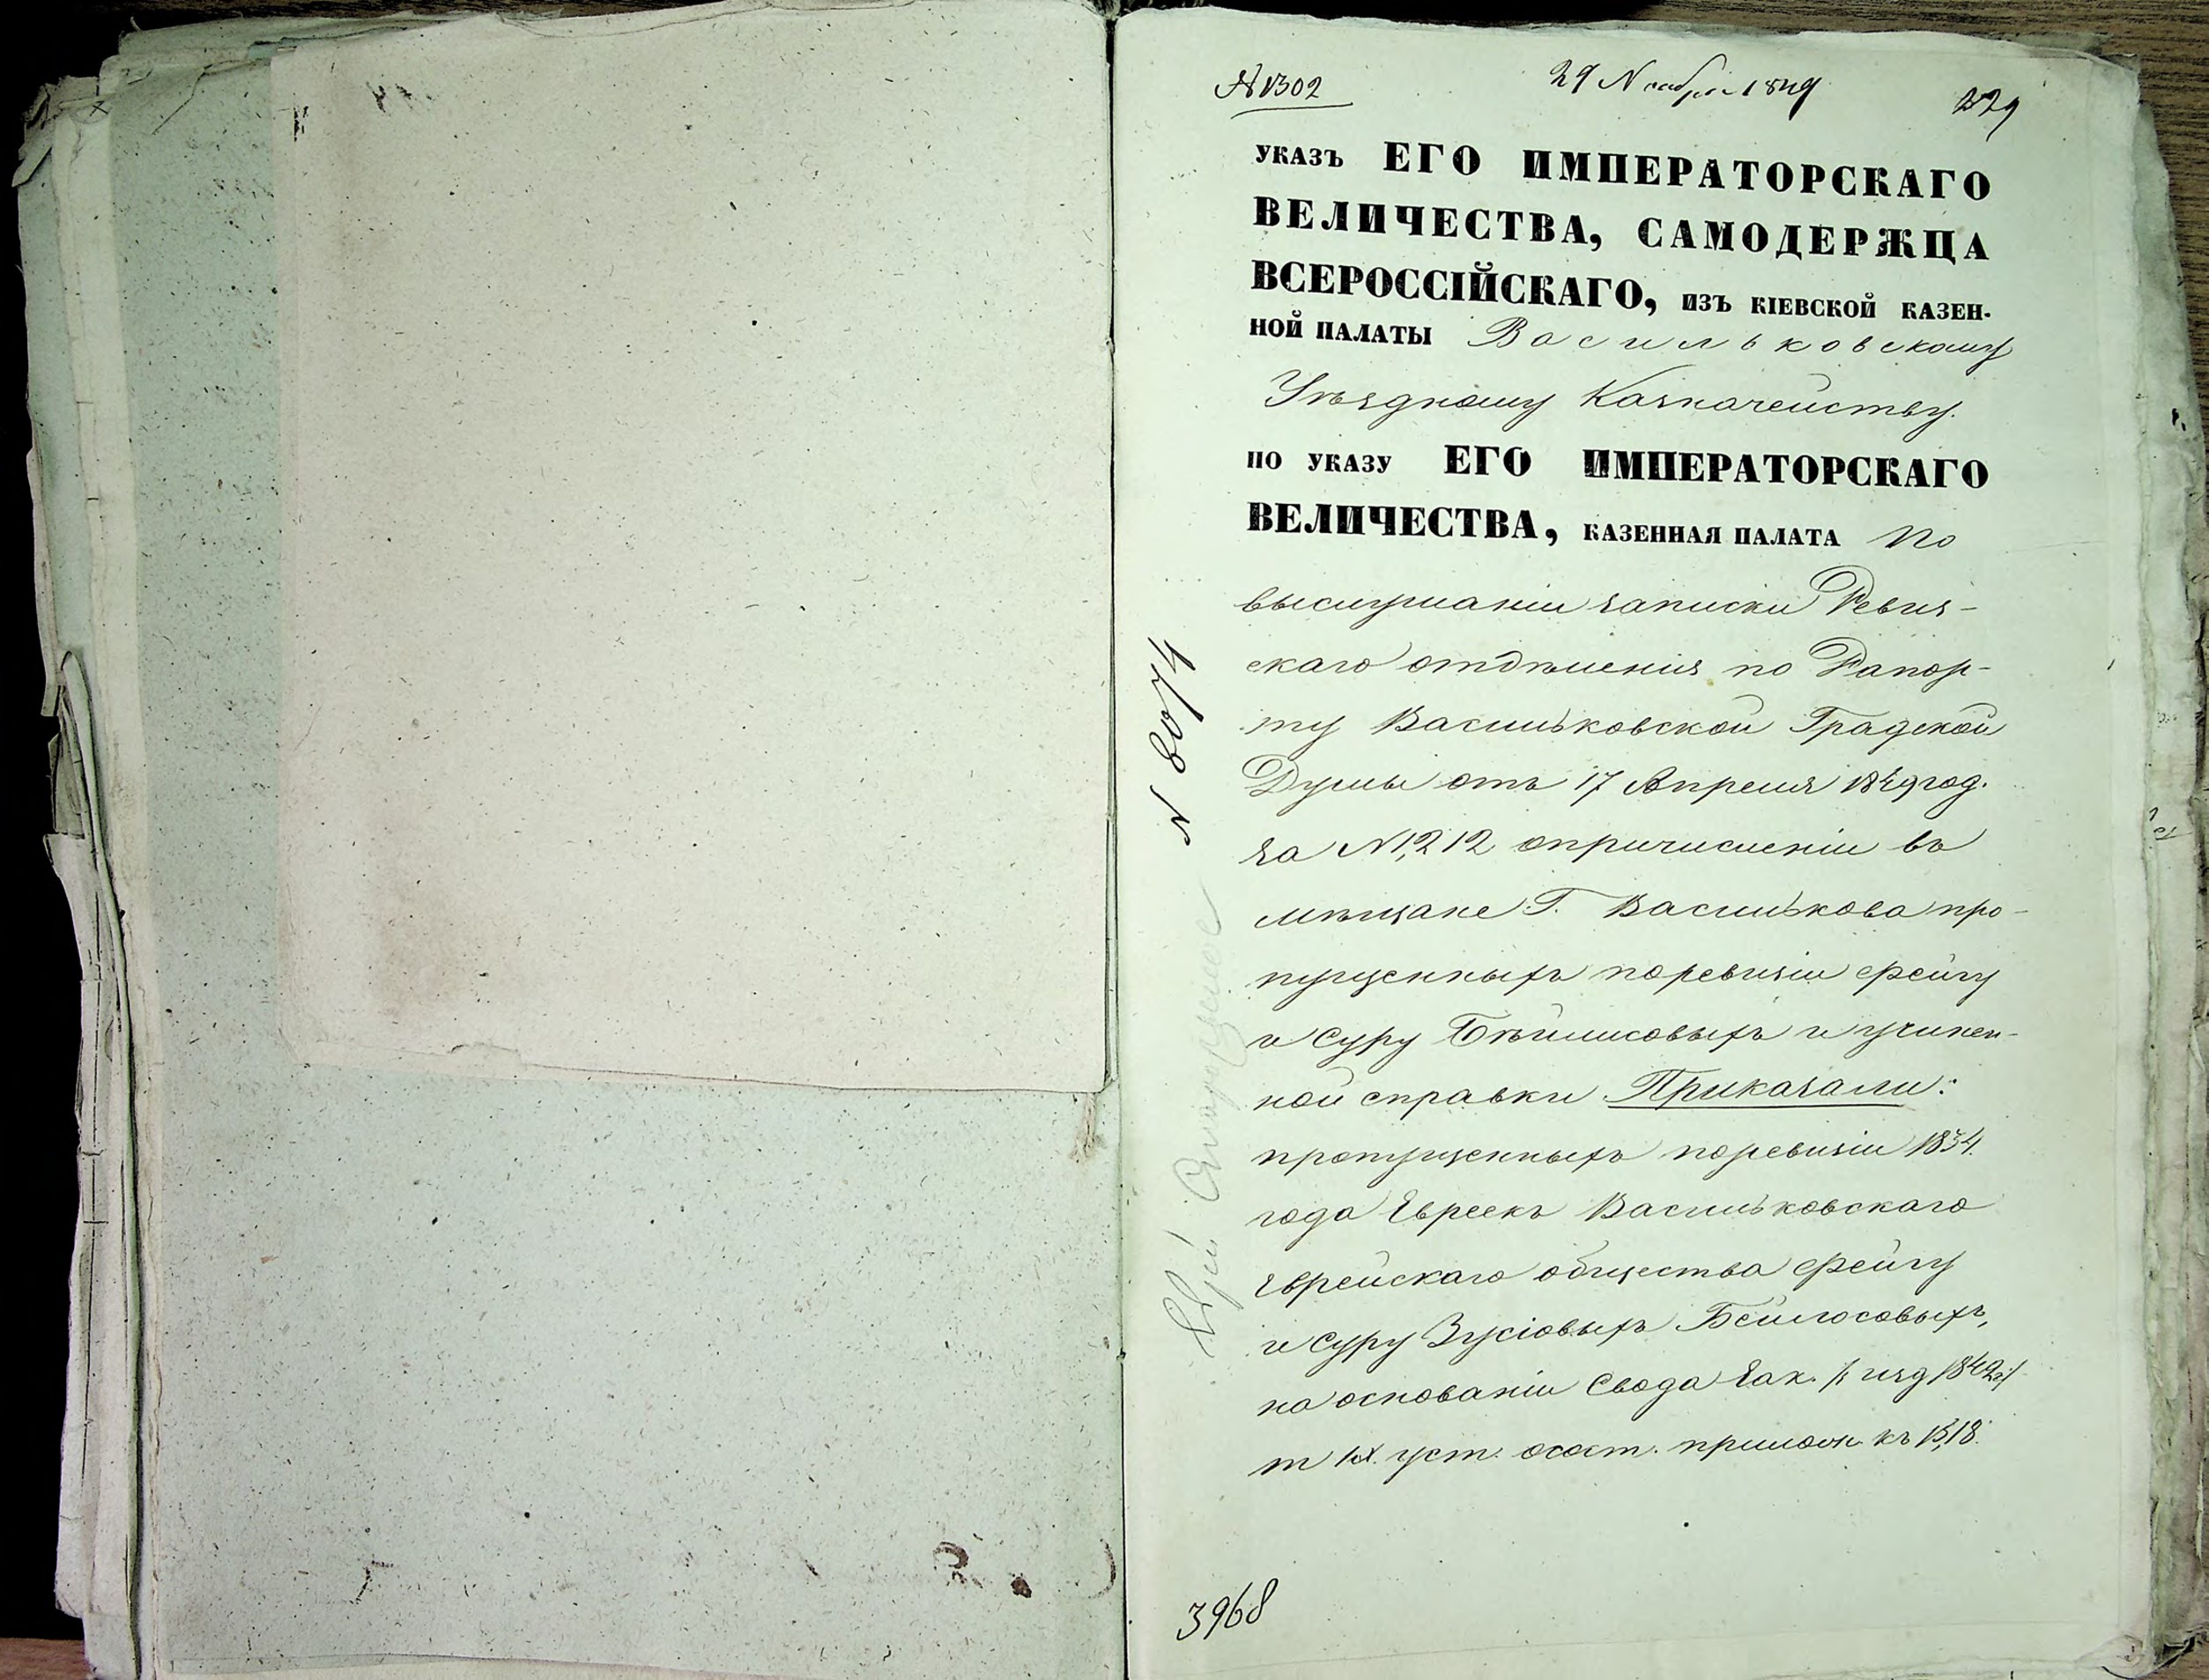 № 1302
29 Ноября 1849
УКАЗЪ ЕГО ИМПЕРАТОРСКАГО
ВЕЛИЧЕСТВА, САМОДЕРЖЦА
ВСЕРОССІЙСКАГО, ИЗЪ КІЕВСКОЙ КАЗЕН-
НОЙ ПАЛАТЫ Васильковскому
Уѣздному Казначейству.
ПО УКАЗУ ЕГО ИМПЕРАТОРСКАГО
ВЕЛИЧЕСТВА, КАЗЕННАЯ ПАЛАТА По
выслушаніи записки Ревиз-
скаго отдѣленія по Рапор-
ту Васильковской Градской
Думы отъ 17 Апреля 1849 год.
за N 1,212 опричисленіи въ
мѣщане Г. Василькова про-
пущенныхъ поревизіи Фейгу
и Суру Бѣйлисовыхъ и учинен-
ной справки Приказали:
пропущенныхъ поревизіи 1834.
года Евреекъ Васильковскаго
Еврейскаго общества Фейгу
и Суру Зусіовыхъ Бейлосовыхъ,
на основаніи Свода Зак. /: изд 1842 г:/
т IX. уст. о сост. прилож. къ
N 8074
3968